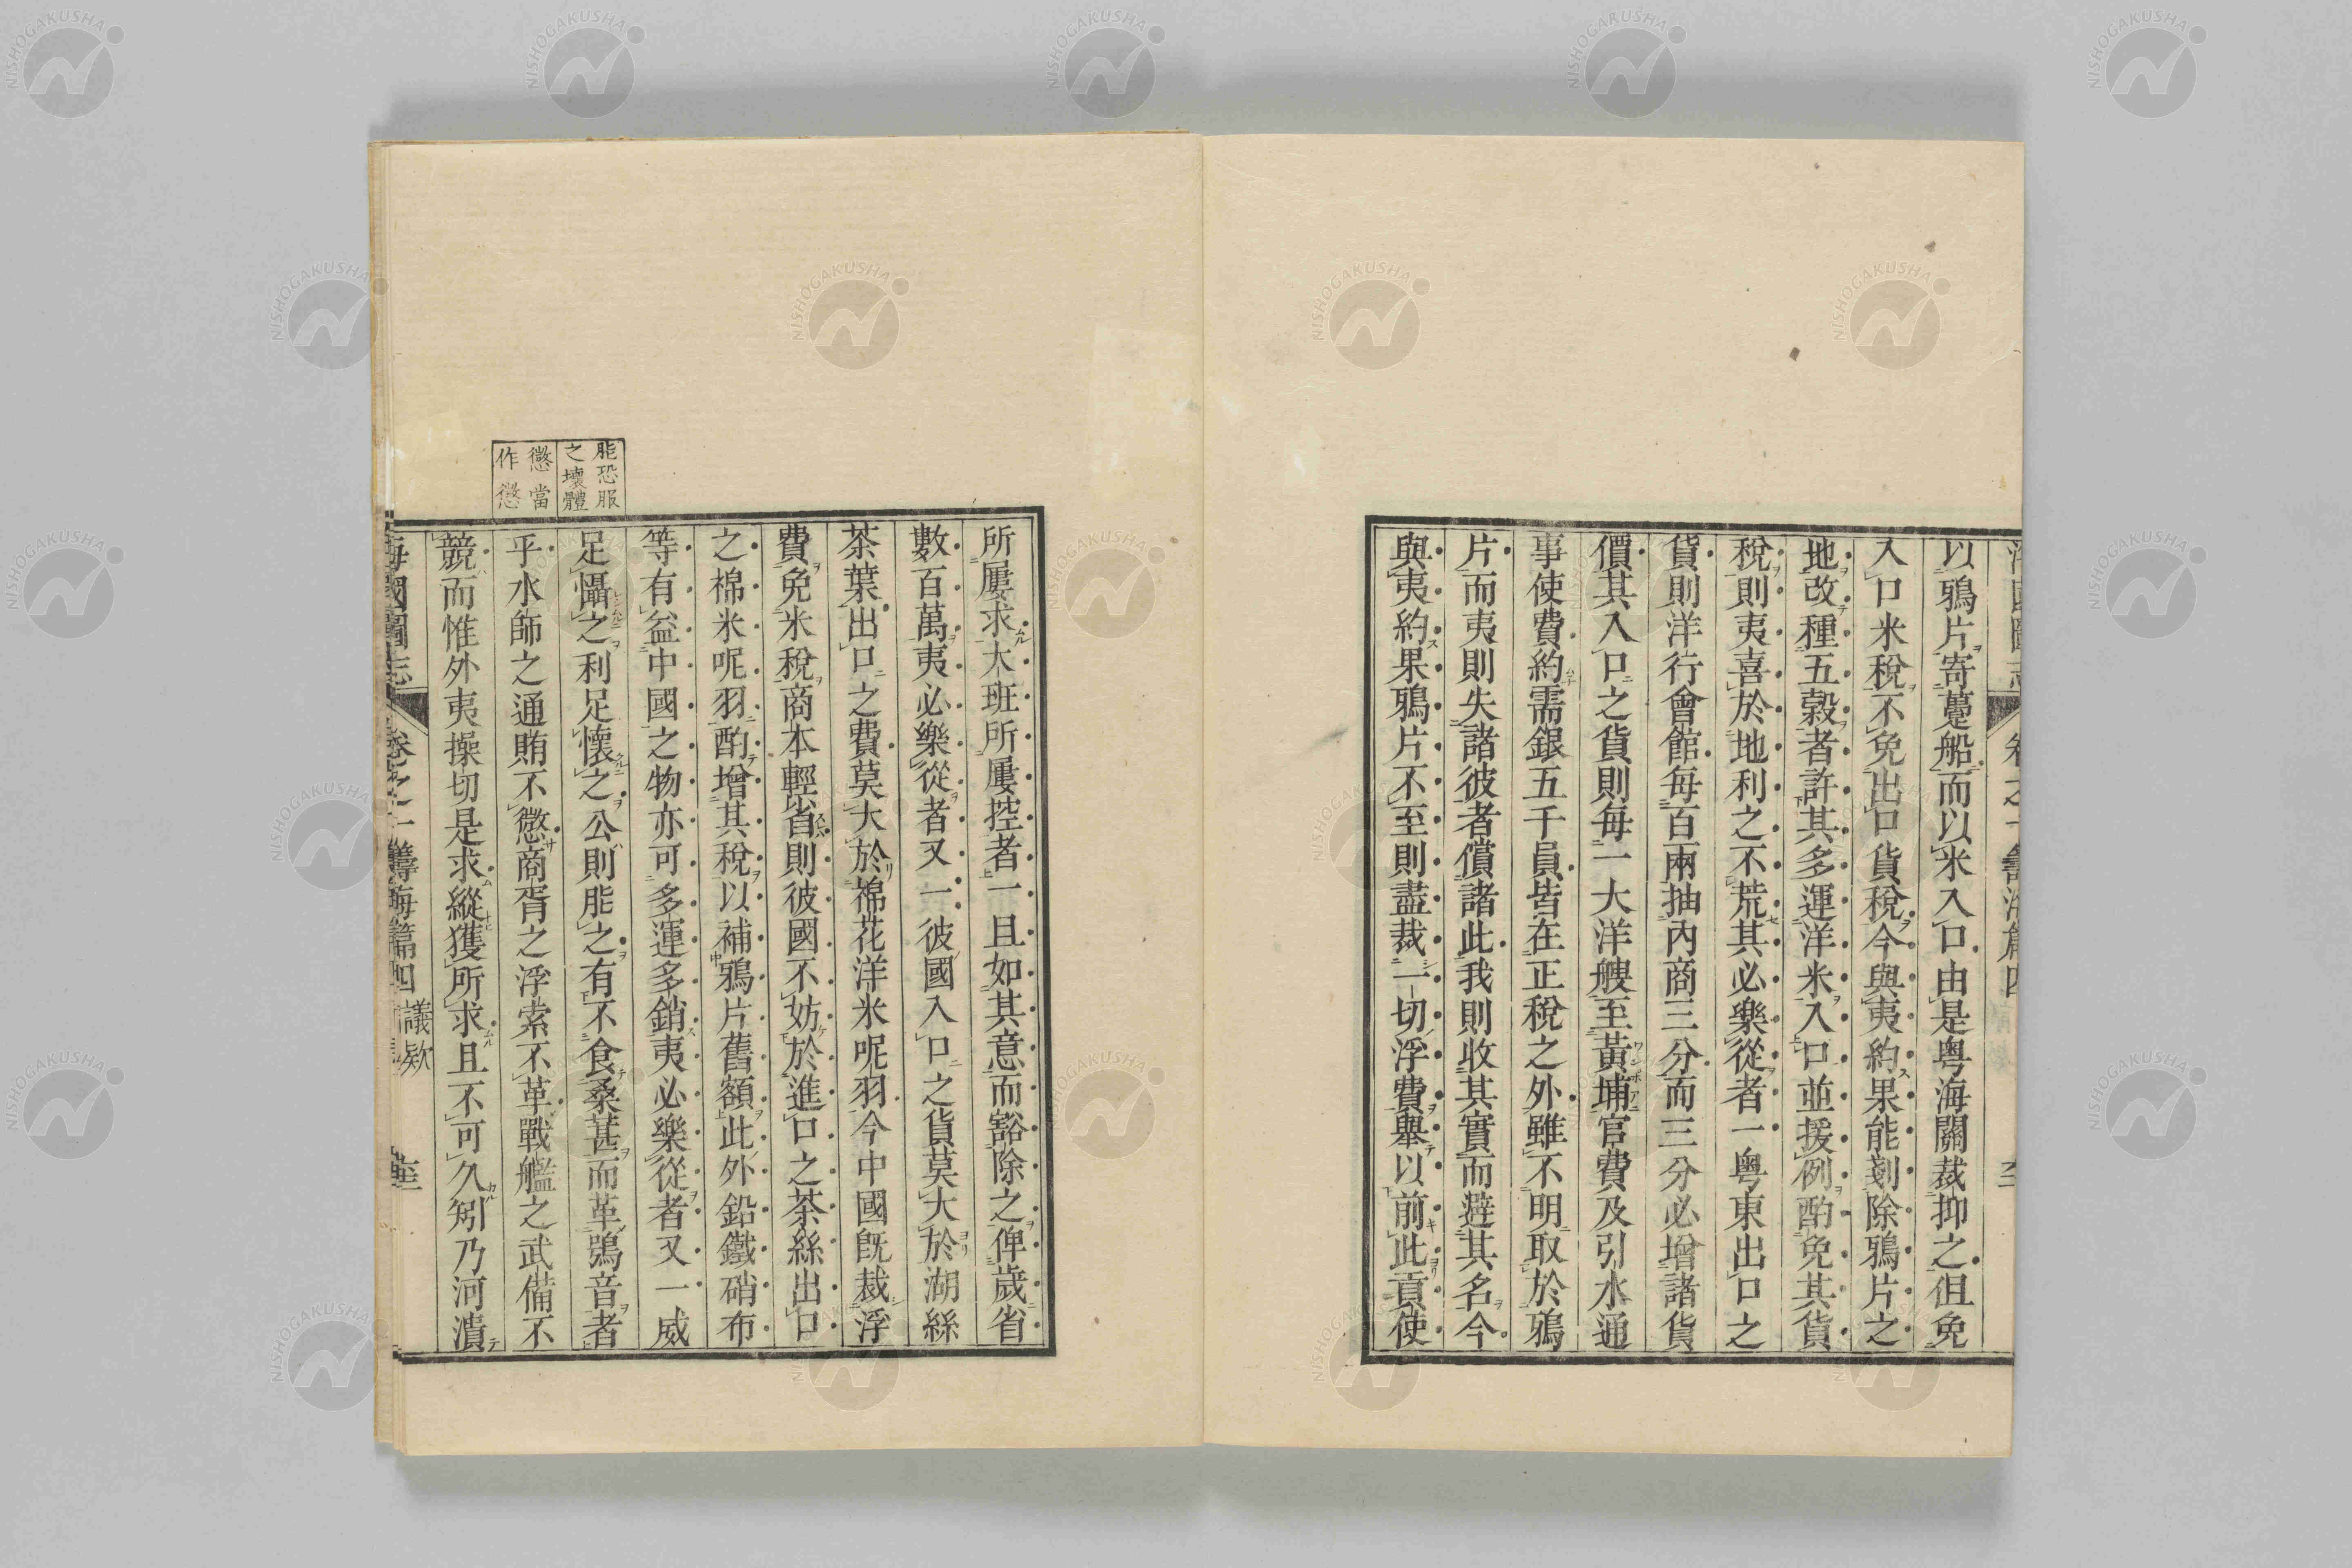 以鴉片寄躉船而以米入口由是粤海關裁抑之徂免
入口米稅不免出口貨稅今與夷約果能剗除鴉片之
地改種五穀者許其多運洋米入口並援例酌免其貨
稅則夷喜於地利之不荒其必樂從者一粤東出口之
貨則洋行會館每百兩抽內商三分而三分必增諸貨
價其入口之貨則每一大洋艘至黃埔官費及引水通
事使費約需銀五千員皆在正稅之外雖不明取於鴉
片而夷則失諸彼者償諸此我則收其實而避其名今
與夷約果鴉片不至則盡裁一切浮費舉以前此貢使
所屢求大班所屢控者一旦如其意而豁除之俾歲省
數百萬夷必樂從者又一彼國入口之貨莫大於湖絲
茶葉出口之費莫大於棉花洋米呢羽今中國旣裁浮
費免米稅商本輕省則彼國不妨於進口之茶絲出口
之棉米呢羽酌增其稅以補鴉片舊額此外鉛鐵硝布
等有益中國之物亦可多運多銷夷必樂從者又一威
足懾之利足懷之公則能之有不食桑葚而革鴞音者
乎水師之通賄不懲商胥之浮索不革戰艦之武備不
競而惟外夷操切是求縱獲所求且不可久矧乃河潰
能恐服
之壞體
懲當
作懲
海國圖志 卷之一 籌海篇四 議欵